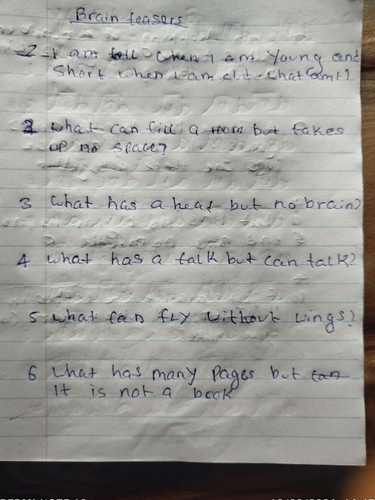 Brain teasers
2 I am tall when I am young and
short when I am old what am I?
2 What can fill a room but takes
up no space?
3 What has a head but no brain?
4 What has a talk but can talk?
5 What can fly without wings?
6 What has many pages but can
It is not a book